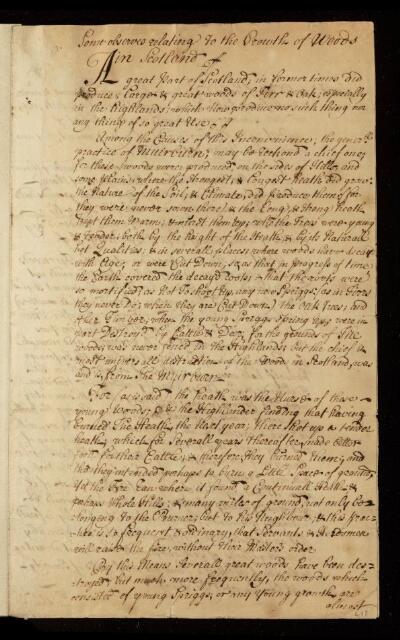 Some observes relating to the Growth of Woods
in Scotland
A great Part of Scotland, in former times Did
produce Large & great woods of Firr & Oak, especially
in the Highlands which Now produce no such thing nor
any thing of so great Use,
Among the Causes of this Inconvenience, the general
practice of Muirburn, may be reckoned a chief one,
for these woods were produced on the sides of Hills, and
some plains where the strongest, & longest Heath did grow.
The Nature of the Soil, & Climate, did produce them, for
they were never sown there; & the Long, & strong heath
kept them Warm; them up, while the Trees were young
& tender, both by the height of the Heath, & by its Natural
hot Qualities, & in several places, where woods have decay
with Age, or were Cut Down, so as that in progress of time
the Earth covered the decay'd roots, & that the roots were
so mortified, as Not To shoot up any new sprigs, (as in Firrs
they never Do, when they are Cut Down) the Oak trees, and
other Timber, when the young Sprigs spring up, were in
part Destroyed by Cattle & Deer, for the grounds of the
woods was never fenced in the Highlands, but the chief &
most universall destruction of the Wood in Scotland, was
and is, from the Muirburn
For as is said the heath was the Nurse of these
young Woods, & the Highlander finding that having
burned the Heath, the Next year, there shot up a tender
heath, which for severall years thereafter made better
food for their Cattle, & therefore they burned them, and
tho they intended perhaps to burn a Little Space of ground,
yet the fire ran where it found a Continuall Heath, &
perhaps whole Hills, & many miles of ground, not only be=
longing to the Owner, but to his Neighbour, & this prac-
tise is so frequent & ordinary, that Servants &
will raise the fire, without their Masters order.
By this Means severall great woods have been des=
troyed, but much more frequently, the woods which
consisted of young Spriggs, or any young growth are
almost